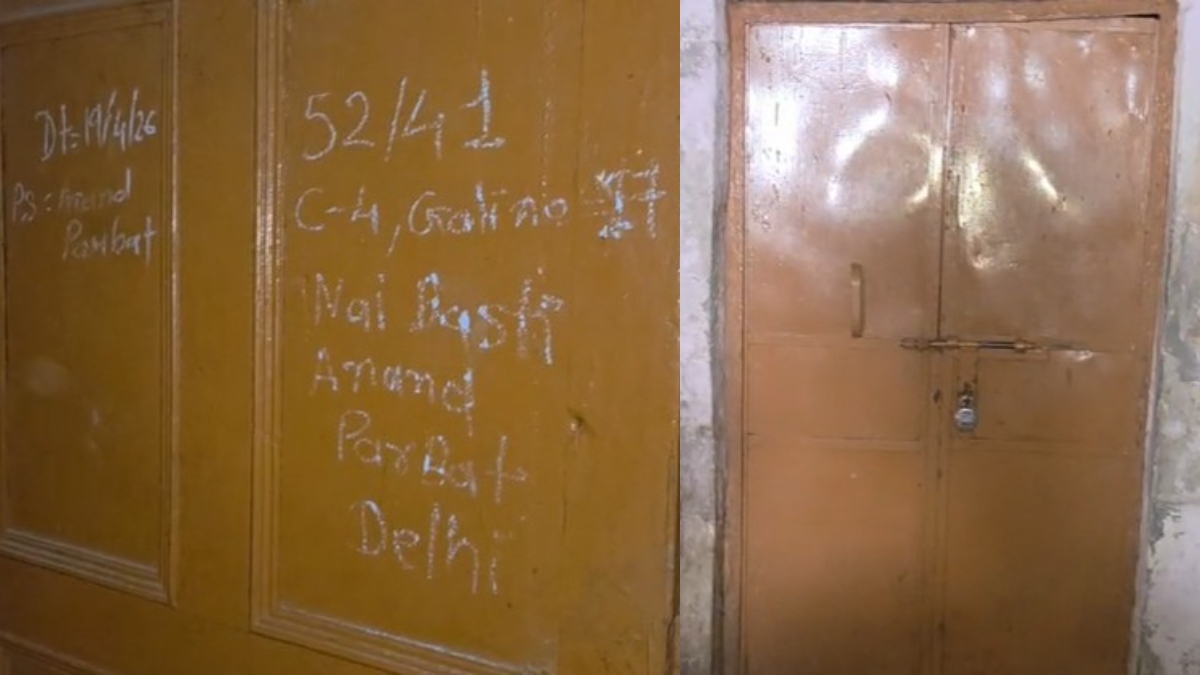 Dt=19/4/26
PS: Anand
Parbat
52/41
C-4, Gali no 17
Nai Basti
Anand
ParBat
Delhi